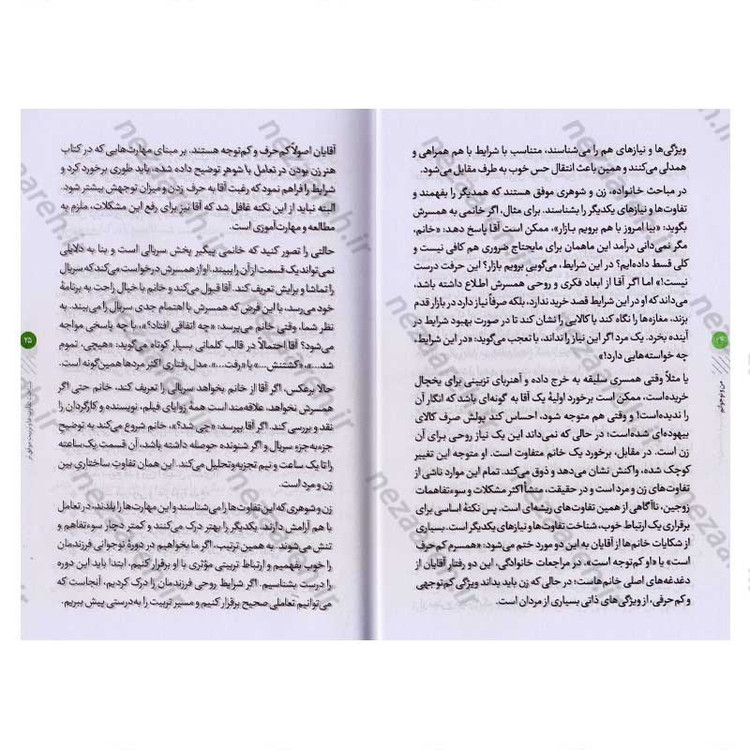 ویژگی‌ها و نیازهای هم را می‌شناسند، متناسب با شرایط با هم همراهی و
همدلی می‌کنند و همین باعث انتقال حس خوب به طرف مقابل می‌شود.
در مباحث خانواده، زن و شوهری موفق هستند که همدیگر را بفهمند و
تفاوت‌ها و نیازهای یکدیگر را بشناسند. برای مثال، اگر خانمی به همسرش
بگوید: «بیا امروز با هم برویم بازار»، ممکن است آقا پاسخ دهد: «خانم،
مگر نمی‌دانی درآمد این ماهمان برای مایحتاج ضروری هم کافی نیست و
کلی قسط داده‌ایم؟ در این شرایط، می‌گویی برویم بازار؟ این حرفت درست
نیست!» اما اگر آقا از ابعاد فکری و روحی همسرش اطلاع داشته باشد،
می‌داند که او در این شرایط قصد خرید ندارد، بلکه صرفاً نیاز دارد در بازار قدم
بزند، مغازه‌ها را نگاه کند یا کالایی را نشان کند تا در صورت بهبود شرایط در
آینده بخرد. یک مرد اگر این نیاز را نداند، با تعجب می‌گوید: «در این شرایط،
چه خواسته‌هایی دارد!»
یا مثلاً وقتی همسری سلیقه به خرج داده و آهنربای تزیینی برای یخچال
خریده‌است، ممکن است برخورد اولیهٔ یک آقا به گونه‌ای باشد که انگار آن
را ندیده‌است! و وقتی هم متوجه شود، احساس کند پولش صرف کالای
بیهوده‌ای شده‌است؛ در حالی که نمی‌داند این یک نیاز روحی برای آن
زن است. در مقابل، برخورد یک خانم متفاوت است. او متوجه این تغییر
کوچک شده، واکنش نشان می‌دهد و ذوق می‌کند. تمام این موارد ناشی از
تفاوت‌های زن و مرد است و در حقیقت، منشأ اکثر مشکلات و سوءتفاهمات
زوجین، ناآگاهی از همین تفاوت‌های ریشه‌ای است. پس نکتهٔ اساسی برای
برقراری یک ارتباط خوب، شناخت تفاوت‌ها و نیازهای یکدیگر است. بسیاری
از شکایات خانم‌ها از آقایان به این دو مورد ختم می‌شود: «همسرم کم‌حرف
است» یا «او کم‌توجه است». در مراجعات خانوادگی، این دو رفتار آقایان از
دغدغه‌های اصلی خانم‌هاست؛ در حالی که زن باید بداند ویژگی کم‌توجهی
و کم‌حرفی، از ویژگی‌های ذاتی بسیاری از مردان است.
من و نوجوانم
آقایان اصولاً کم‌حرف و کم‌توجه هستند. بر مبنای مهارت‌هایی که در کتاب
هنر زن بودن در تعامل با شوهر توضیح داده شده، باید طوری برخورد کرد و
شرایط را فراهم نمود که رغبت آقا به حرف زدن و میزان توجهش بیشتر شود.
البته نباید از این نکته غافل شد که آقا نیز برای رفع این مشکلات، ملزم به
مطالعه و مهارت‌آموزی است.
حالتی را تصور کنید که خانمی پیگیر پخش سریالی است و بنا به دلایلی
نمی‌تواند یک قسمت از آن را ببیند. او از همسرش درخواست می‌کند که سریال
را تماشا و برایش تعریف کند. آقا قبول می‌کند و خانم با خیال راحت به برنامهٔ
خود می‌رسد، با این فرض که همسرش با اهتمام جدی سریال را می‌بیند. به
نظر شما، وقتی خانم می‌پرسد: «چه اتفاقی افتاد؟»، با چه پاسخی مواجه
می‌شود؟ آقا احتمالاً در قالب کلماتی بسیار کوتاه می‌گوید: «هیچی، تموم
شد...»، «کشتنش...» یا «رفت...». مدل رفتاری اکثر مردها همین‌گونه است.
حالا برعکس، اگر آقا از خانم بخواهد سریالی را تعریف کند، خانم حتی اگر
همسرش نخواهد، علاقه‌مند است همهٔ زوایای فیلم، نویسنده و کارگردان را
نقد و بررسی کند. اگر آقا بپرسد: «چی شد؟»، خانم شروع می‌کند به توضیح
جزء‌به‌جزء سریال و اگر شنونده حوصله داشته باشد، آن قسمت یک‌ساعته
را تا یک ساعت و نیم تجزیه‌وتحلیل می‌کند. این همان تفاوت ساختاری بین
زن و مرد است.
زن و شوهری که این تفاوت‌ها را می‌شناسند و این مهارت‌ها را بلدند، در تعامل
با هم آرامش دارند، یکدیگر را بهتر درک می‌کنند و کمتر دچار سوءتفاهم و
تنش می‌شوند. به همین ترتیب، اگر ما بخواهیم در دورهٔ نوجوانی فرزندمان
را خوب بفهمیم و ارتباط تربیتی مؤثری با او برقرار کنیم، ابتدا باید این دوره
را درست بشناسیم. اگر شرایط روحی فرزندمان را درک کردیم، آنجاست که
می‌توانیم تعاملی صحیح برقرار کنیم و مسیر تربیت را به‌درستی پیش ببریم.
۲۵
nezaareh.ir